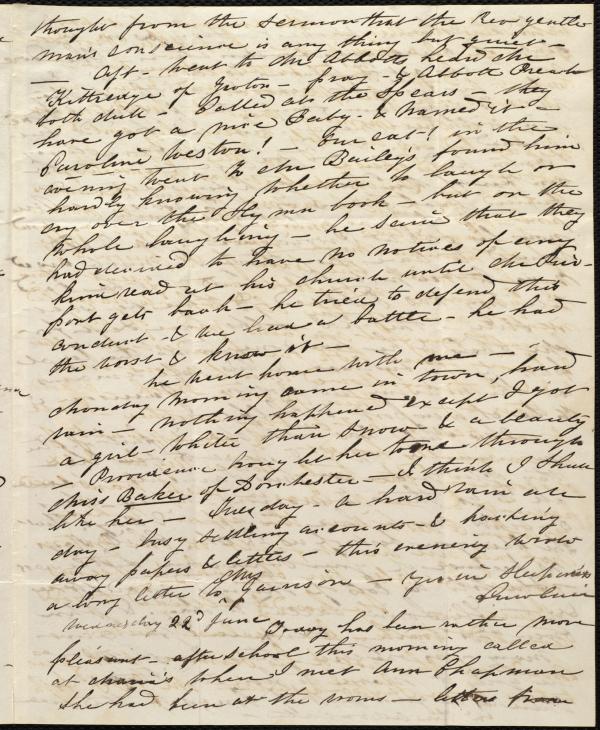 thought from the sermon that the Rev gentle
man's conscience is any thing but quiet —
— Aft – went to Mr Abbotts heard Mr
Kittredge of Groton – pray – & Abbott Preach
both dull – Called at the Spears – they
have got a nice Baby – & named it –
Caroline Weston! – Our cat! in the
evening went to the Bailey's found him
hardly knowing whether to laugh or
cry over the Hymn book – but on the
whole laughing – he said that they
had decided to have no notices of any
kind read at his church until
gets back – he tried to defend this
conduct – & we had a battle – he had
the worst & knew it –
he went home with me –
Monday morning came in town, hard
rain – nothing happened except I got
a girl – whiter than snow & a beauty
– Providence brought her to me through
Miss Baker of Dorchester – I think I shall
like her – Tuesday – a hard rain all
day – busy settling accounts & packing
away papers & letters – this evening wrote
a long letter to Mrs Garrison –

Wednesday 22d June Today has been rather more
pleasant – after school this morning called
at Maria's where I met Ann Chapman
She had been at the rooms –